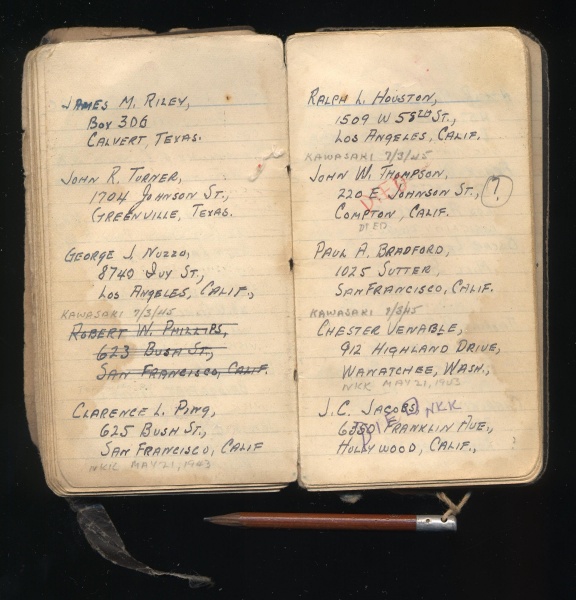 JAMES M. RILEY,
BOX 306
CALVERT, TEXAS.
JOHN R. TURNER,
1704 JOHNSON ST.,
GREENVILLE, TEXAS.
GEORGE J. NUZZO,
8740 IVY ST.,
LOS ANGELES, CALIF.,
KAWASAKI 7/3/45
ROBERT W. PHILLIPS,
623 BUSH ST.,
SAN FRANCISCO, CALIF.
CLARENCE L. PING,
625 BUSH ST.,
SAN FRANCISCO, CALIF
MAY 21, 1943
RALPH L. HOUSTON,
1509 W 58TH ST.,
LOS ANGELES, CALIF.
KAWASAKI 7/3/45
JOHN W. THOMPSON,
220 E. JOHNSON ST., ?
DIED
COMPTON, CALIF.
DIED
PAUL A. BRADFORD,
1025 SUTTER,
SAN FRANCISCO, CALIF.
KAWASAKI 7/3/45
CHESTER VENABLE,
912 HIGHLAND DRIVE,
WANATCHEE, WASH.,
NKK MAY 21, 1943
J.C. JACOBS, NKK
DIED
6350 FRANKLIN AVE.,
HOLLYWOOD, CALIF.,